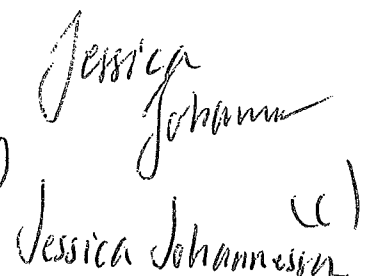 Jessica
Johann
Jessica Johannesson